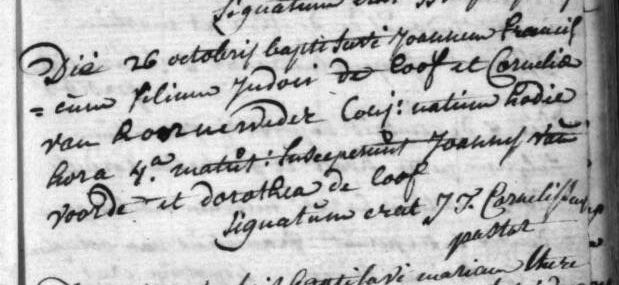 Signatum erat
Die 26 octobris baptisavi Joannem Francis
= cum filium Judoci de Coof et Cornelia
van hoorneweder Conj: natum hodie
hora 4.a matut: susceperunt Joannes van
voorde et dorothea de Coof
Signatum erat J F. Cornelissen
pastor
baptisavi mariam there